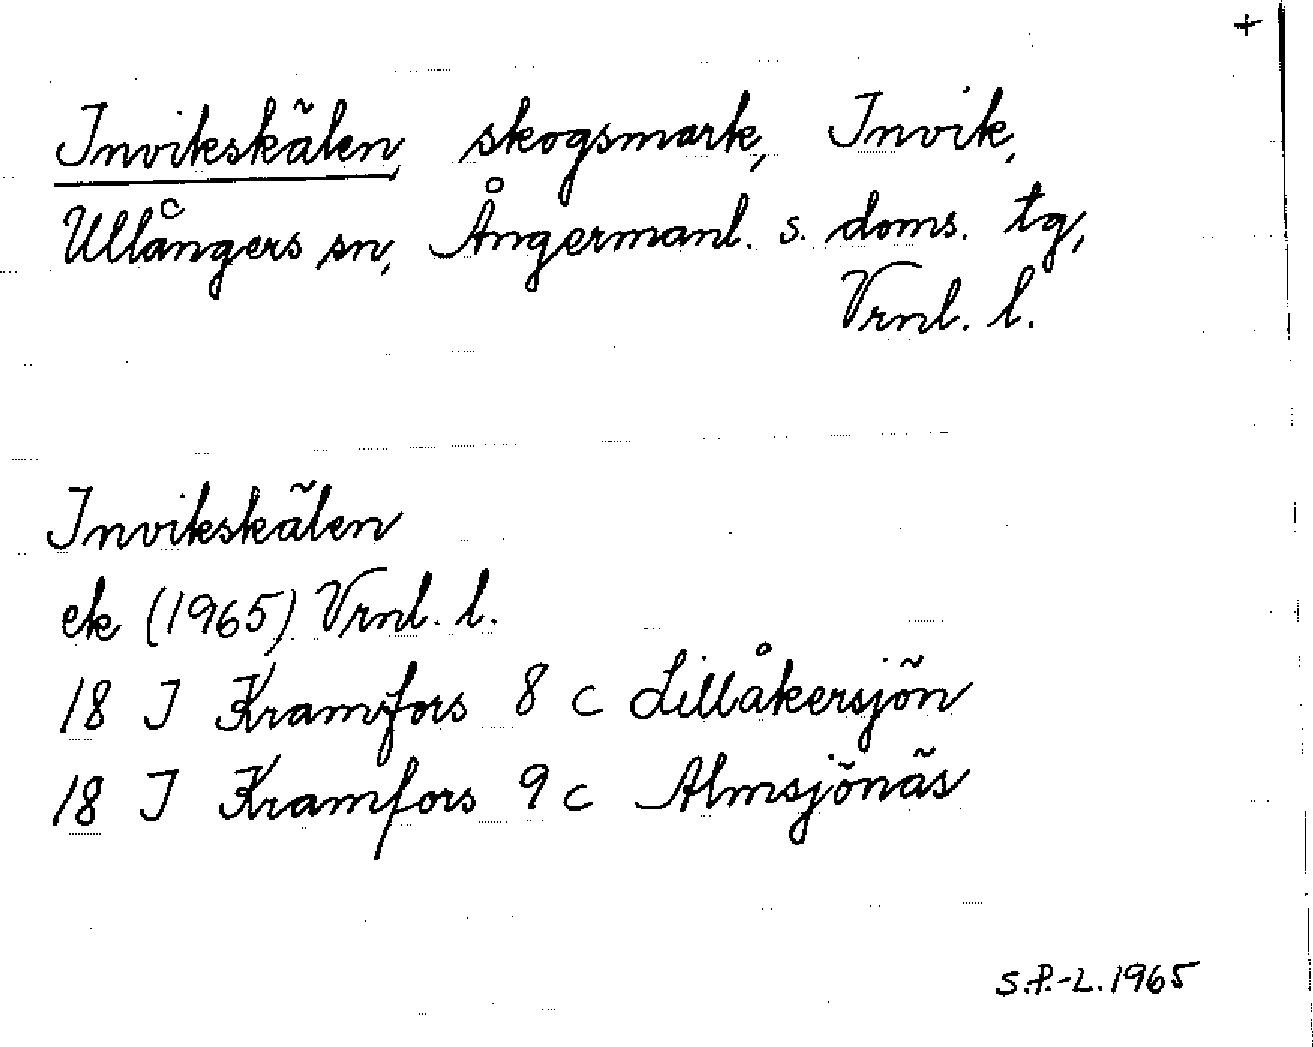 +
Invikskälen, skogsmark, Invik,
Ullångers sn, Ångermanl. s. doms. tg,
Vrnl. l.
Invikskälen
ek (1965) Vrnl. l.
18 I Kramfors 8 c Lillåkersjön
18 I Kramfors 9 c Almsjönäs
S.P.-L. 1965